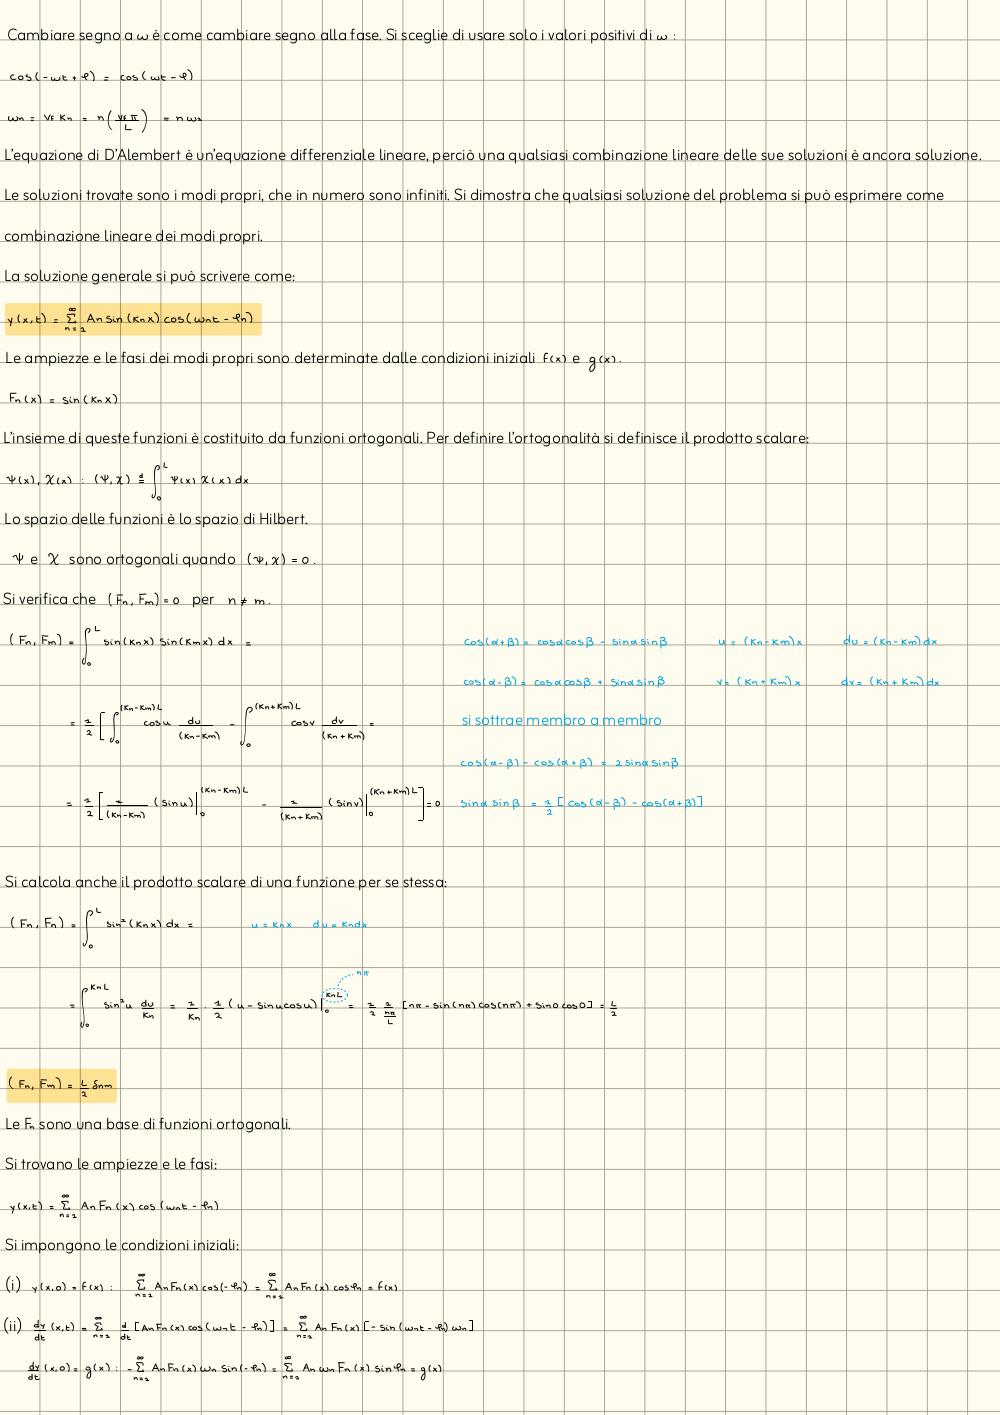 Cambiare segno a ω è come cambiare segno alla fase. Si sceglie di usare solo i valori positivi di ω :
cos(-ωt + φ) = cos(ωt - φ)
ωn = vf Kn = n(vf π/L) = nω1
L'equazione di D'Alembert è un'equazione differenziale lineare, perciò una qualsiasi combinazione lineare delle sue soluzioni è ancora soluzione.
Le soluzioni trovate sono i modi propri, che in numero sono infiniti. Si dimostra che qualsiasi soluzione del problema si può esprimere come
combinazione lineare dei modi propri.
La soluzione generale si può scrivere come:
y(x,t) = Σ_{n=1}^{∞} An sin(Knx) cos(ωnt - φn)
Le ampiezze e le fasi dei modi propri sono determinate dalle condizioni iniziali f(x) e g(x).
Fn(x) = sin(Knx)
L'insieme di queste funzioni è costituito da funzioni ortogonali. Per definire l'ortogonalità si definisce il prodotto scalare:
Ψ(x), χ(x) : (Ψ,χ) ≝ ∫_0^L Ψ(x) χ(x) dx
Lo spazio delle funzioni è lo spazio di Hilbert.
Ψ e χ sono ortogonali quando (Ψ,χ) = 0.
Si verifica che (Fn, Fm) = 0 per n ≠ m.
(Fn, Fm) = ∫_0^L sin(Knx) sin(Kmx) dx =
cos(α+β) = cosαcosβ - sinαsinβ u = (Kn-Km)x du = (Kn-Km)dx
cos(α-β) = cosαcosβ + sinαsinβ v = (Kn+Km)x dv = (Kn+Km)dx
= 1/2 [∫_0^{(Kn-Km)L} cosu du/(Kn-Km) - ∫_0^{(Kn+Km)L} cosv dv/(Kn+Km) =
si sottrae membro a membro
cos(α-β) - cos(α+β) = 2sinαsinβ
= 1/2 [1/(Kn-Km) (sinu)|_0^{(Kn-Km)L} - 1/(Kn+Km) (sinv)|_0^{(Kn+Km)L}] = 0
sinα sinβ = 1/2 [cos(α-β) - cos(α+β)]
Si calcola anche il prodotto scalare di una funzione per se stessa:
(Fn, Fn) = ∫_0^L sin²(Knx) dx = u = Knx du = Kndx
nπ
= ∫_0^{KnL} sin²u du/Kn = 1/Kn · 1/2 (u - sinucosu)|_0^{KnL} = 1/2 1/(nπ/L) [nπ - sin(nπ) cos(nπ) + sin0 cos0] = L/2
(Fn, Fm) = L/2 δnm
Le Fn sono una base di funzioni ortogonali.
Si trovano le ampiezze e le fasi:
y(x,t) = Σ_{n=1}^{∞} An Fn(x) cos(ωnt - φn)
Si impongono le condizioni iniziali:
(i) y(x,0) = f(x) : Σ_{n=1}^{∞} An Fn(x) cos(-φn) = Σ_{n=1}^{∞} An Fn(x) cosφn = f(x)
(ii) dy/dt (x,t) = Σ_{n=1}^{∞} d/dt [An Fn(x) cos(ωnt - φn)] = Σ_{n=1}^{∞} An Fn(x) [-sin(ωnt - φn) ωn]
dy/dt (x,0) = g(x) : -Σ_{n=1}^{∞} An Fn(x) ωn sin(-φn) = Σ_{n=1}^{∞} An ωn Fn(x) sinφn = g(x)